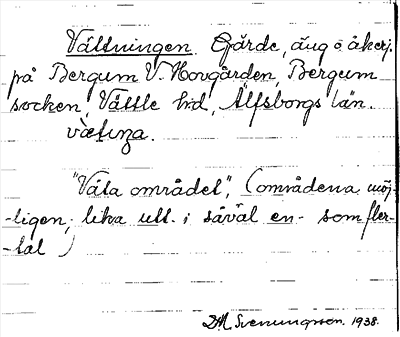 Vättningen. Gärde, äng o åkerj.
på Bergum V. Hovgården, Bergum
socken, Vättle hd, Älfsborgs län.
"Våta området", (områdena möj-
-ligen, lika utt. i såväl en- som fler-
-tal)
D.M. Svenungsson. 1938.